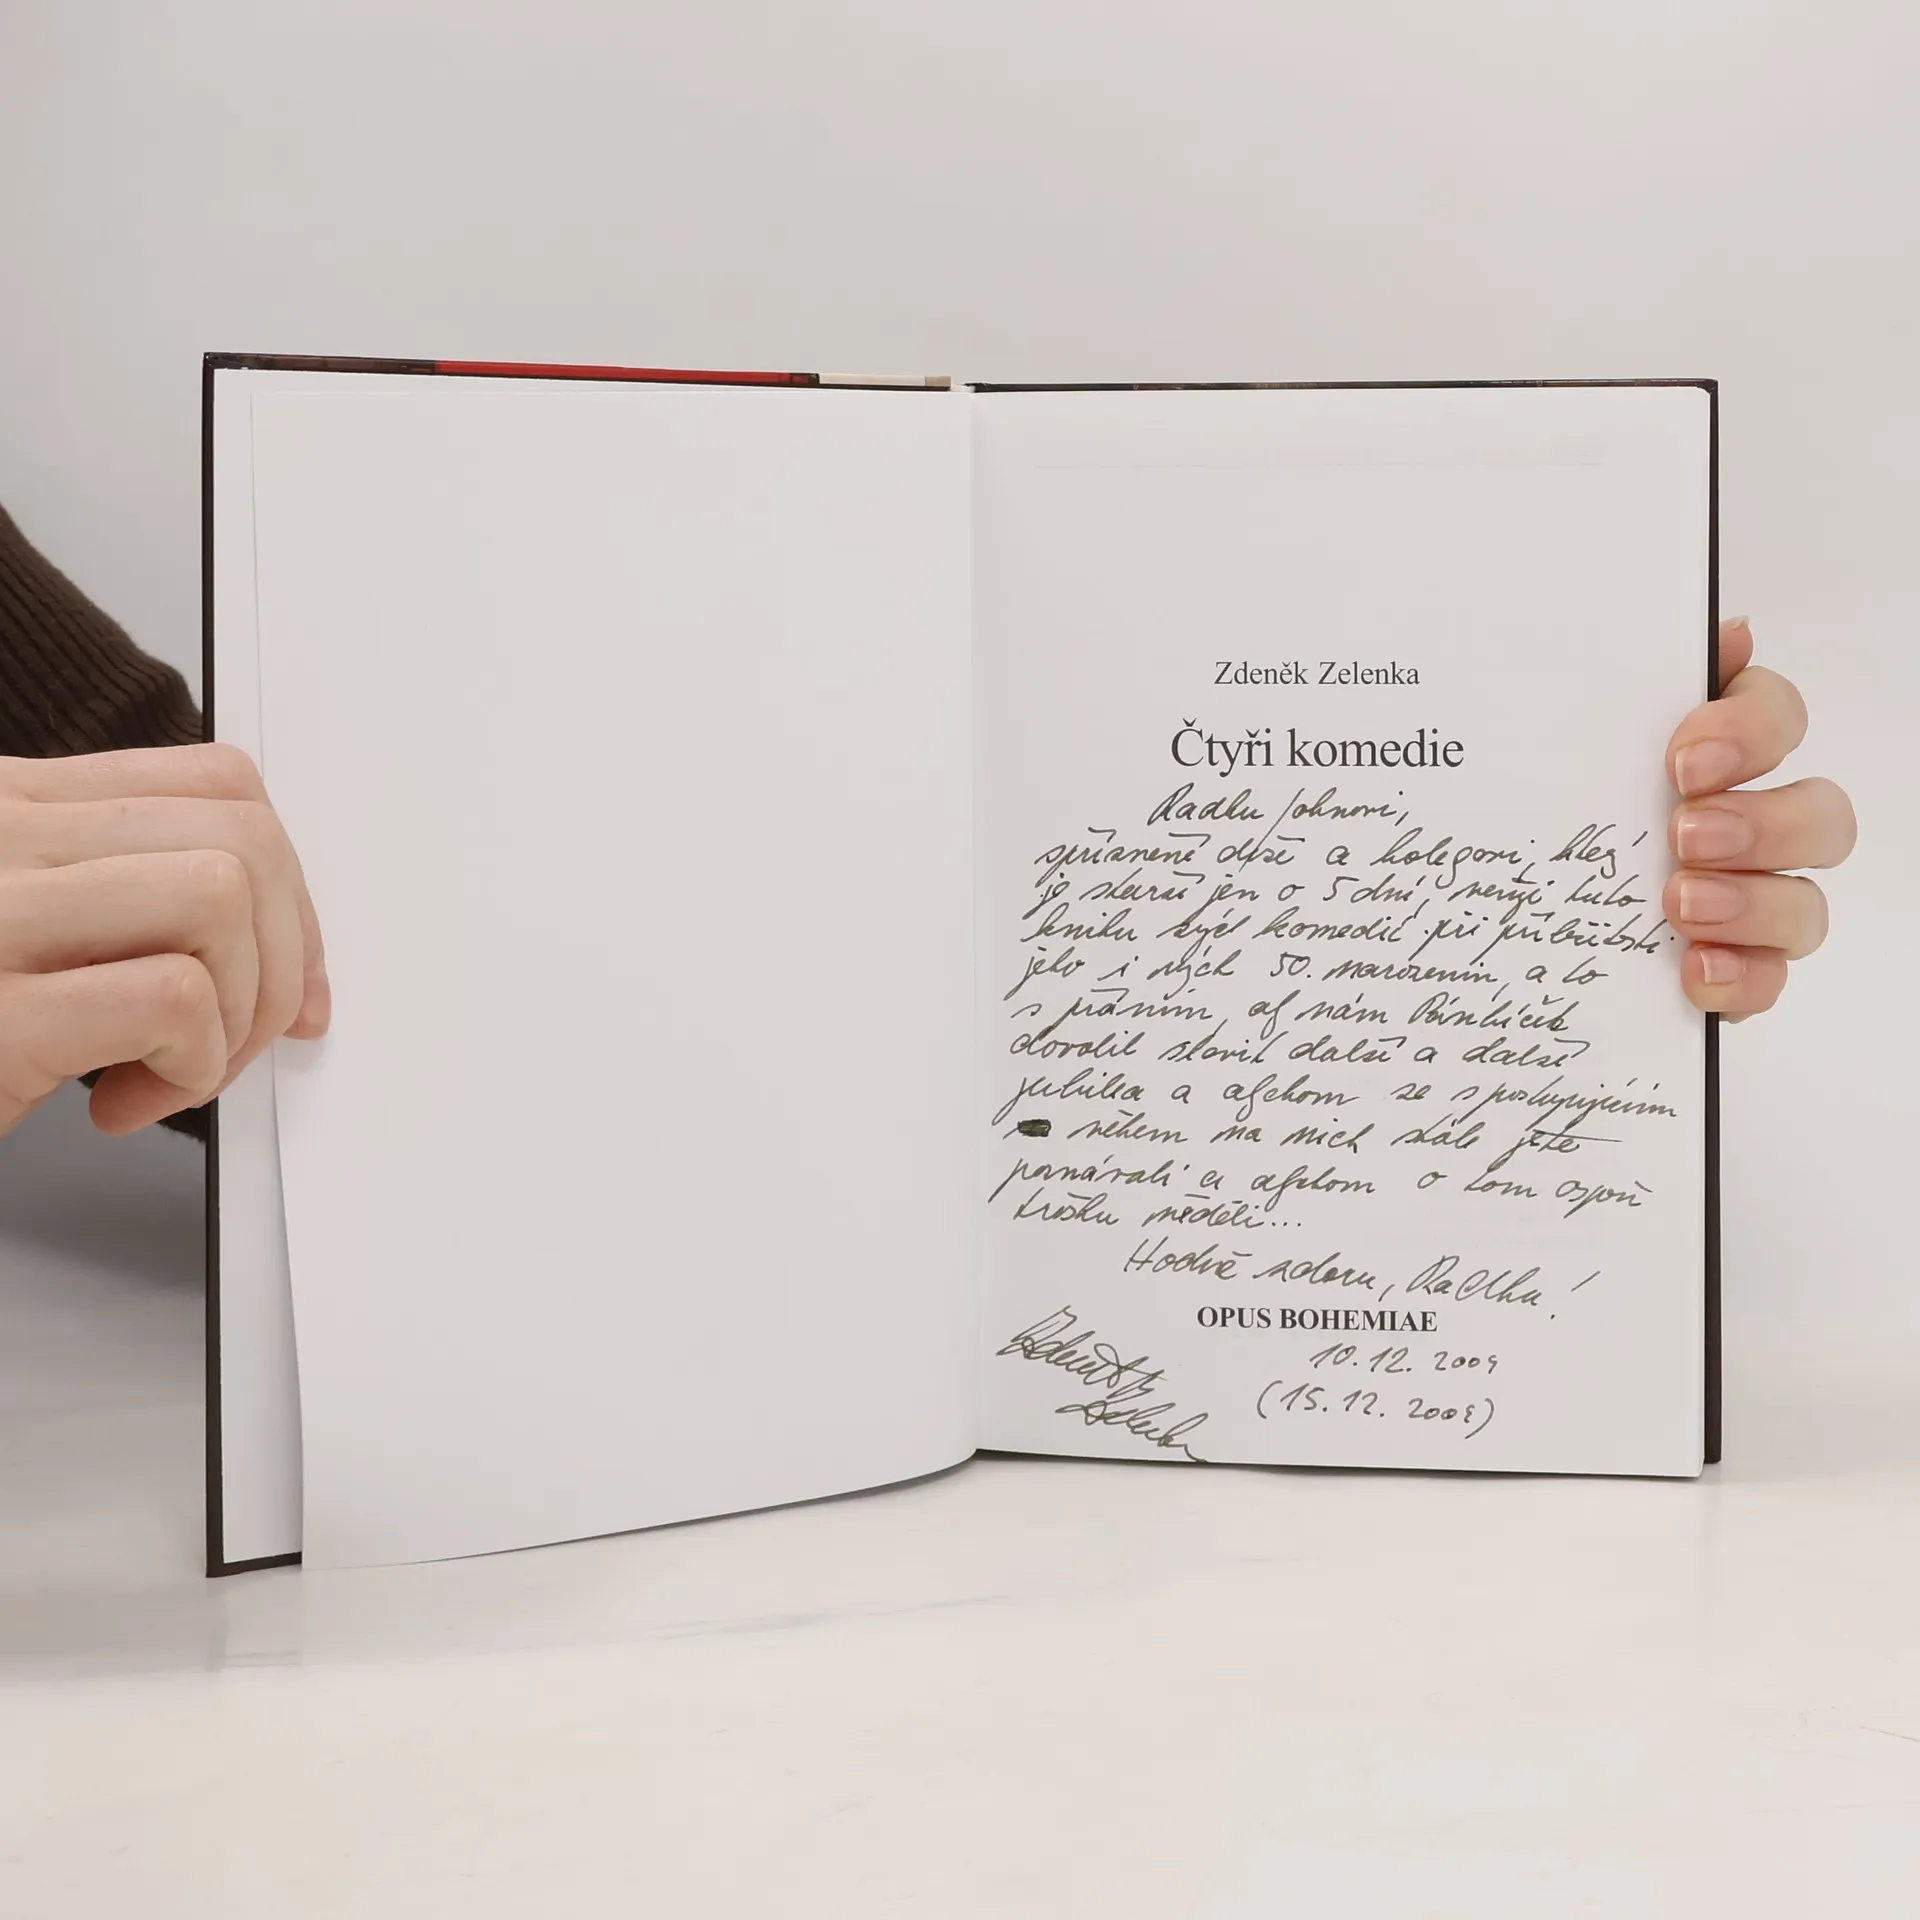 Zdeněk Zelenka
Čtyři komedie
Radku Johnovi,
spřízněné duši a kolegovi, který
je starší jen o 5 dní, věnuji tuto
knihu mých komedií při příležitosti
jeho i mých 50. narozenin, a to
s přáním, ať nám Pánbíček
dovolil slavit další a další
jubilea a abychom se s postupujícím
věkem na nich stále ještě
poznávali a abychom o tom aspoň
trošku věděli...
Hodně zdaru, Radku!
OPUS BOHEMIAE
10. 12. 2004
(15. 12. 2004)
Zdeněk
Zelenka